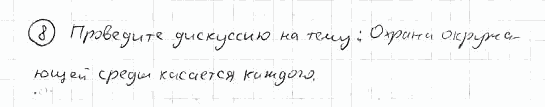 ⑧ Проведите дискуссию на тему: Охрана окружа-
ющей среды касается каждого.